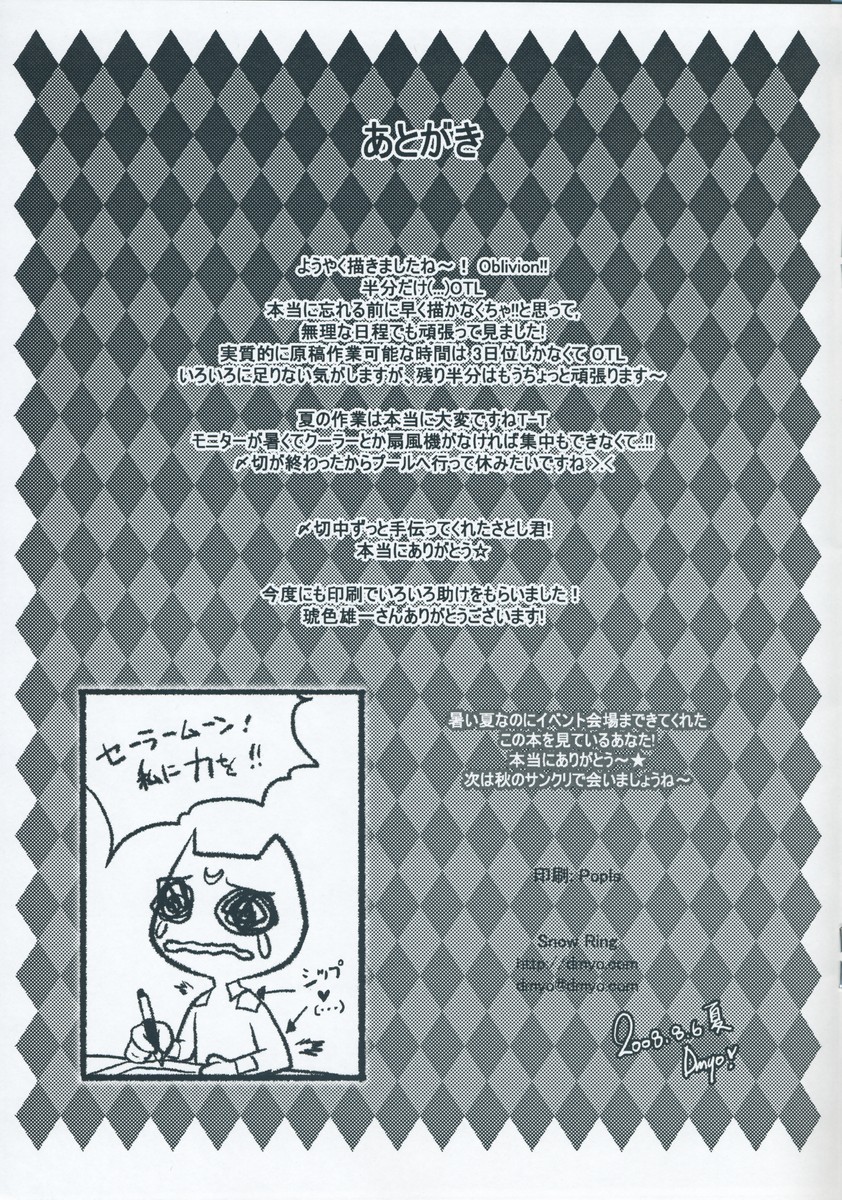 あとがき
ようやく描きましたね～！ Oblivion!!
半分だけ(...)OTL
本当に忘れる前に早く描かなくちゃ!!と思って,
無理な日程でも頑張って見ました!
実質的に原稿作業可能な時間は 3日位しかなくて OTL
いろいろに足りない気がしますが、残り半分はもうちょっと頑張ります～
夏の作業は本当に大変ですねT-T
モニターが暑くてクーラーとか扇風機がなければ集中もできなくて..!!
〆切が終わったからプールへ行って休みたいですね >.<
〆切中ずっと手伝ってくれたさとし君!
本当にありがとう☆
今度にも印刷でいろいろ助けをもらいました！
琥色雄一さんありがとうございます!
セーラームーン!
私に力を!!
シップ
♥
(...)
暑い夏なのにイベント会場まできてくれた
この本を見ているあなた!
本当にありがとう～★
次は秋のサンクリで会いましょうね～
印刷: Popls
Snow Ring
http://dmyo.com
dmyo@dmyo.com
2008.8.6 夏
Dmyo!